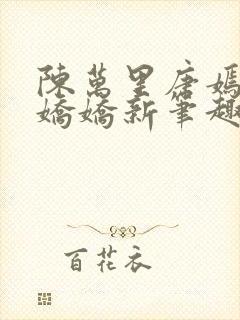 陳萬里唐嫣
嬌嬌新筆趣
百花衣